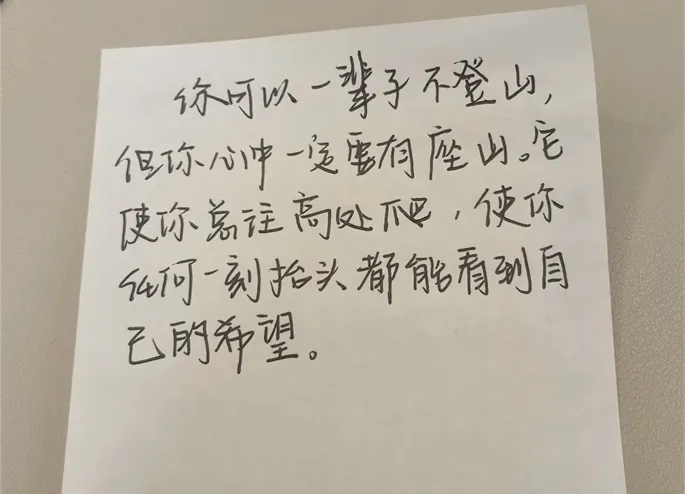 你可以一辈子不登山，
但你心中一定要有座山。它
使你总往高处爬，使你
任何一刻抬头都能看到自
己的希望。